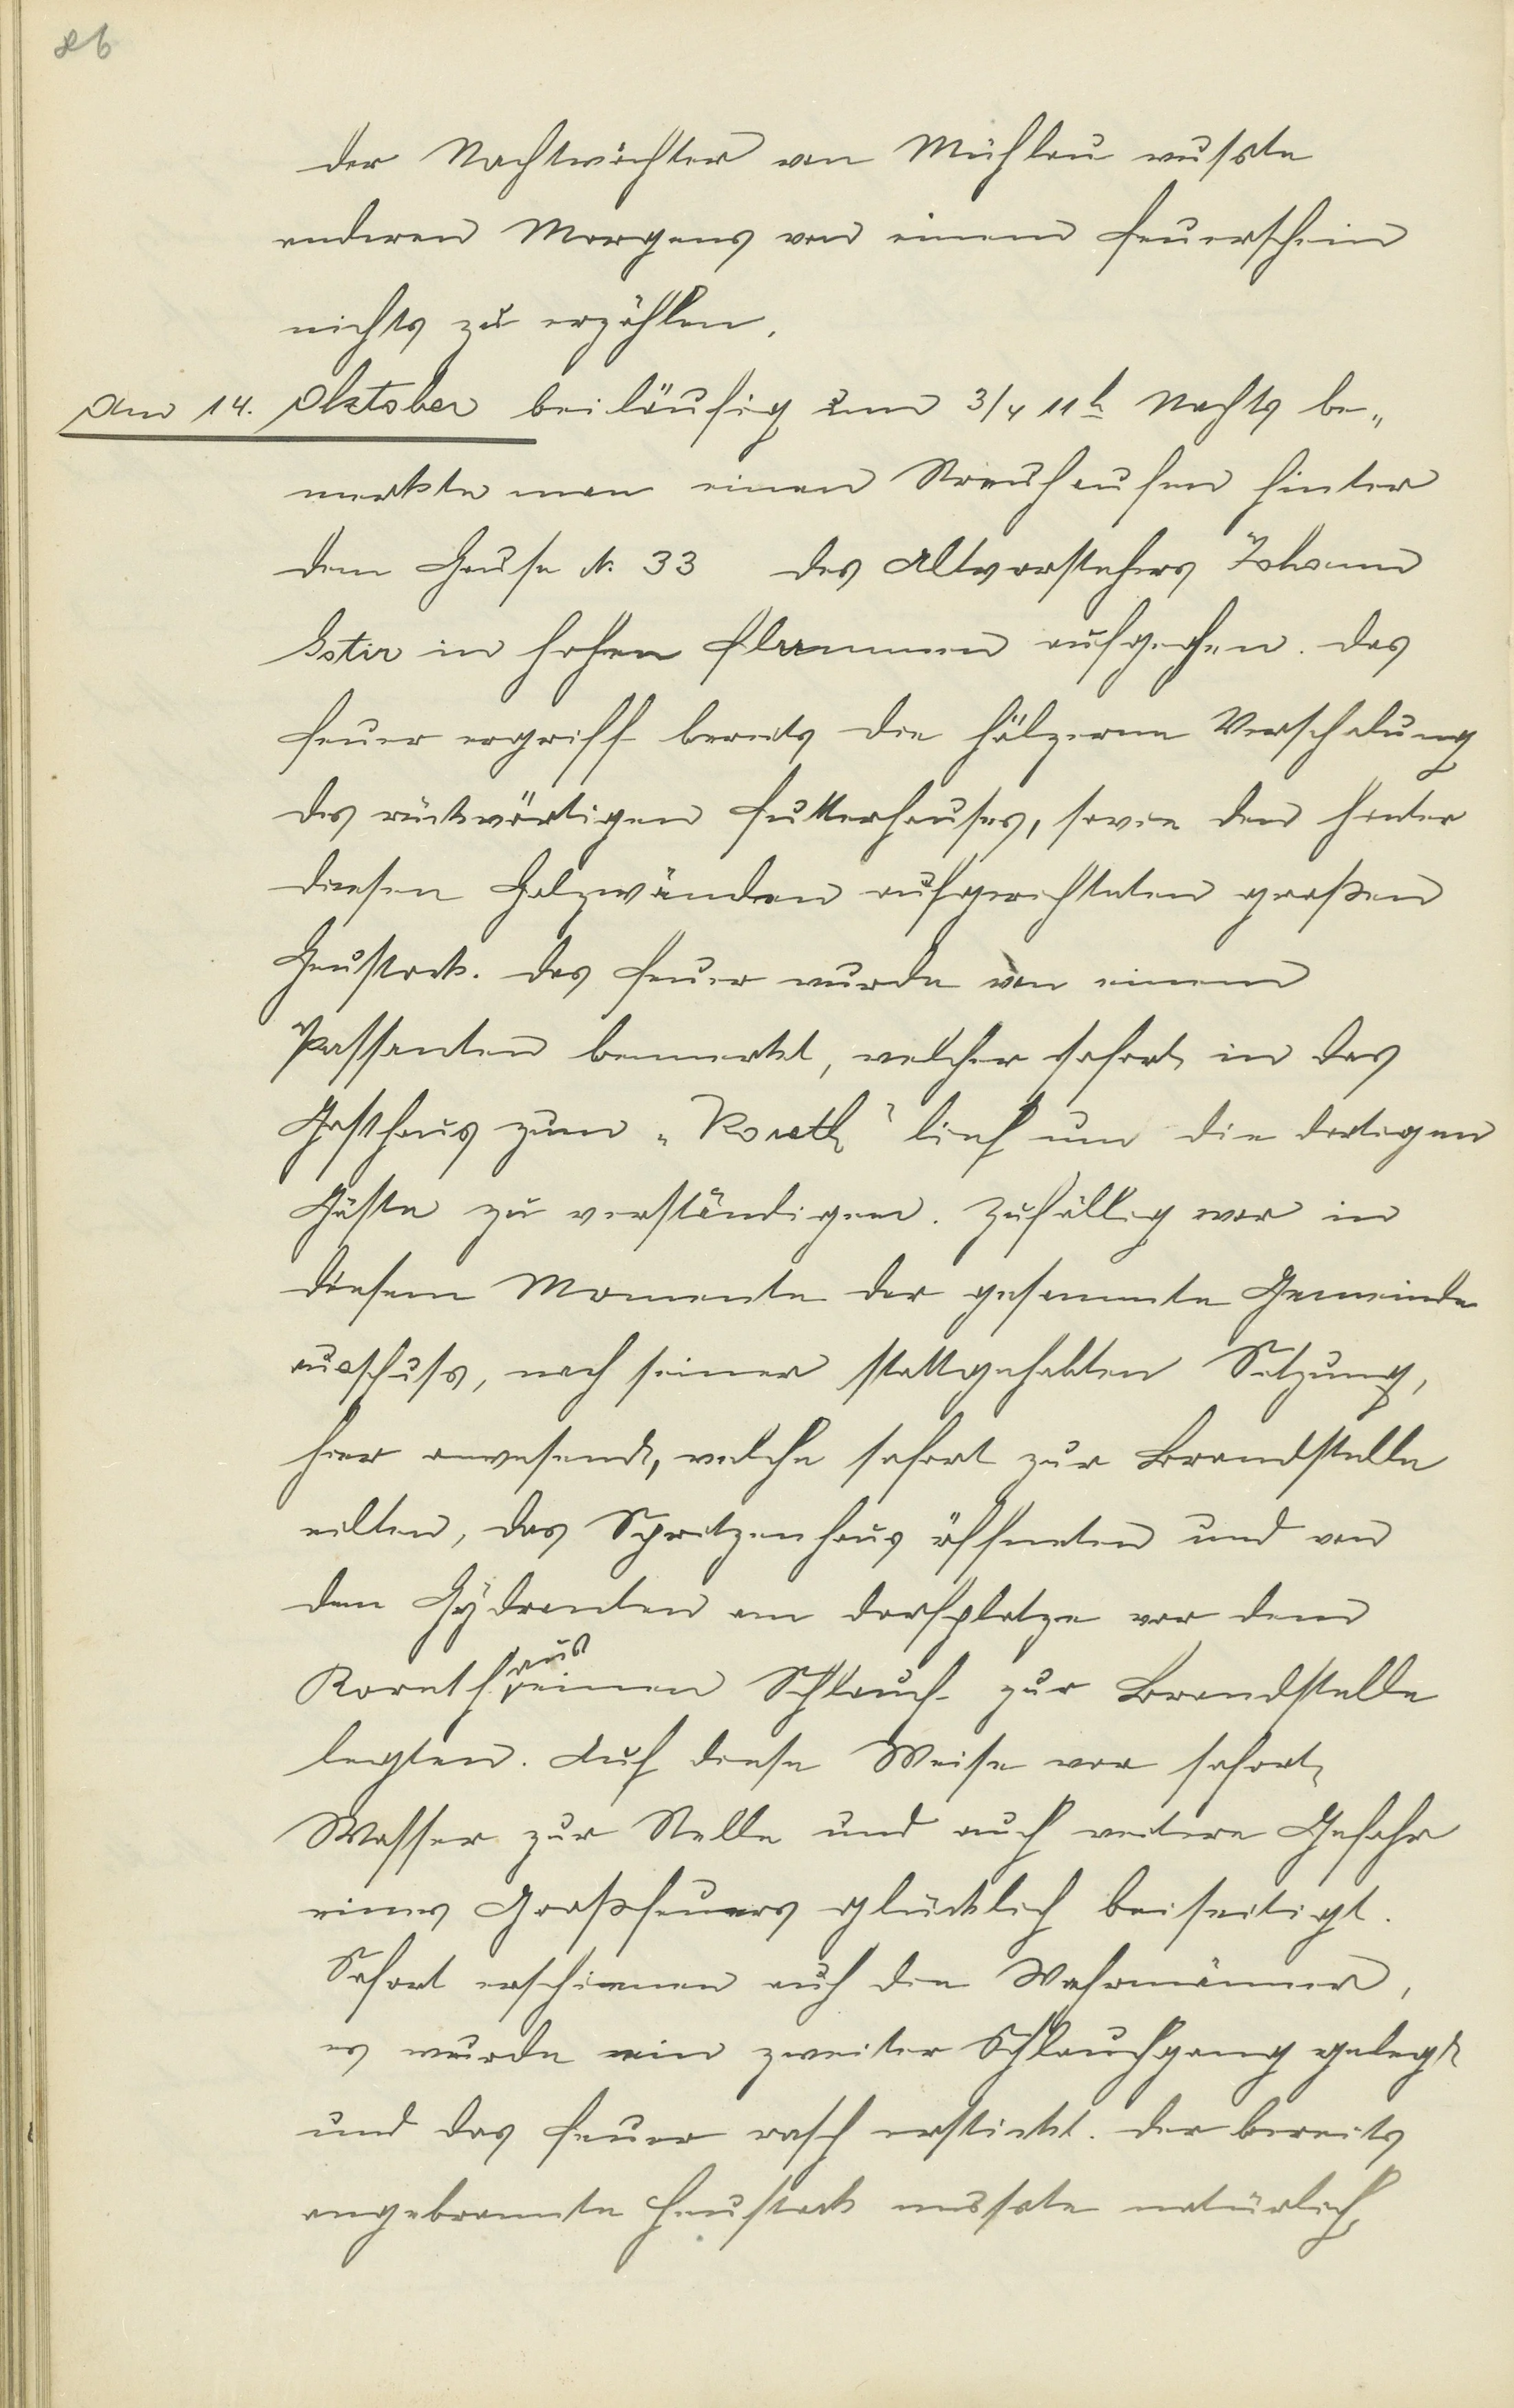 86
der Nachtwächter von Mühlau wußste
anderen Morgens von einem Feuerschein
nichts zu erzählen.
Am 14. Oktober beiläufig um 3/4 11h Nachts be„
merkte man einen Streuhaufen hinter
dem Hause N. 33 des Altvorstehers Johann
Gstir in hohen Flammen aufgehen. Das
Feuer ergriff bereits die hölzerne Verschalung
des rückwärtigen Futterhauses, sowie den hinter
diesen Holzwänden aufgerichteten großen
Heustock. Das Feuer wurde von einem
Passanten bemerkt, welcher sofort in das
Gasthaus zum „Koreth" lief um die dortigen
Gäste zu verständigen. Zufällig war in
diesem Momente der gesammte Gemeinde
ausschuss, nach seiner stattgehabten Sitzung,
hier anwesend, welche sofort zur Brandstelle
eilten, das Spritzenhaus öffneten und von
dem Hydranten am Dorfplatze vor dem
Koreth aus einen Schlauch zur Brandstelle
legten. Auf diese Weise war sofort
Wasser zur Stelle und auch weitere Gefahr
eines Großfeuers glücklich beiseitigt.
Sofort erschienen auch die Wehrmänner,
es wurde ein zweiter Schlauchgang gelegt
und das Feuer rasch erstickt. Der bereits
angebrannte Heustock mussste natürlich